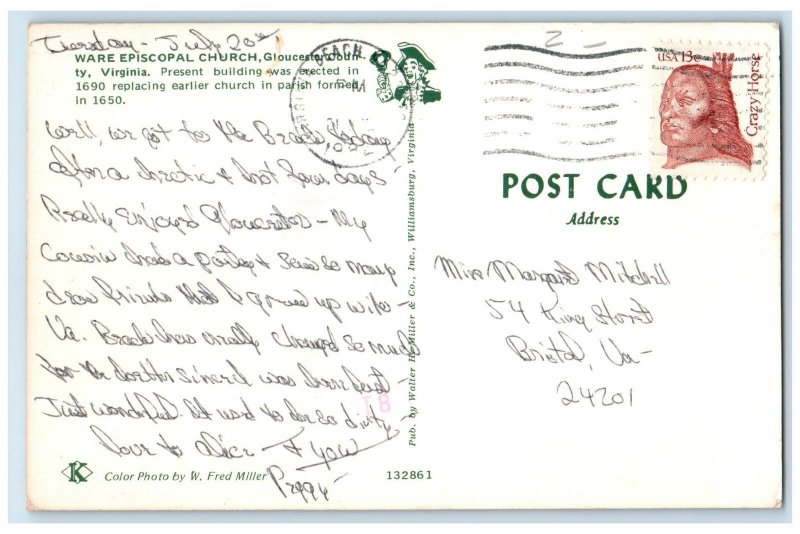 Tuesday - July 20th
WARE EPISCOPAL CHURCH, Gloucester Coun-
ty, Virginia. Present building was erected in
1690 replacing earlier church in parish formed
in 1650.
Well, we got to the Beach, today
after a hectic & hot few days -
Really enjoyed Gloucester - My
Cousin had a party & saw so many
dear friends that I grew up with -
Va. Beach has really changed so much
for the better since I was here last -
Just wonderful. It used to be so dirty -
Love to Alice - & you
Peggy -
Color Photo by W. Fred Miller
132861
Pub. by Walter H. Miller & Co., Inc., Williamsburg, Virginia
BEACH
PM
18
2 -
USA 13c
Crazy Horse
POST CARD
Address
Miss Margaret Mitchell
54 King Street
Bristol, Va -
24201
K